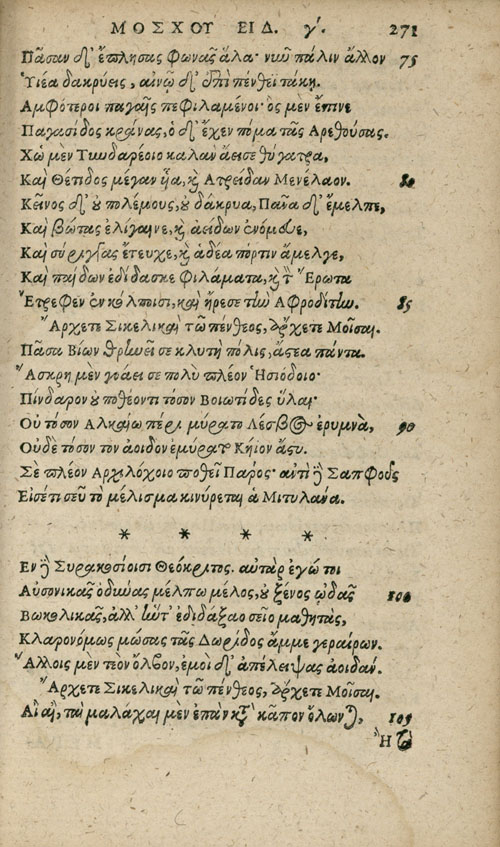 ΜΟΣΧΟΥ ΕΙΔ. γ΄. 271
Πᾶσαν δ᾽ ἔπλησας φωνᾶς ἅλα· νῦν πάλιν ἄλλον 75
Υἱέα δακρύεις, αἰνῷ δ᾽ ἐπὶ πένθεϊ τάκῃ.
Αμφότεροι παγαῖς πεφιλαμένοι· ὃς μὲν ἔπινε
Παγασίδος κράνας, ὁ δ᾽ ἔχεν πόμα τᾶς Αρεθούσας.
Χὠ μὲν Τυνδαρέοιο καλὰν ἄεισε θύγατρα,
Καὶ Θέτιδος μέγαν ἷα, καὶ Ατρείδαν Μενέλαον. 80
Κεῖνος δ᾽ οὐ πολέμους, οὐ δάκρυα, Πᾶνα δ᾽ ἔμελπε,
Καὶ βώτας ἐλίγαινε, καὶ ἀείδων ἐνόμευε,
Καὶ σύριγγας ἔτευχε, καὶ ἁδέα πόρτιν ἄμελγε,
Καὶ παίδων ἐδίδασκε φιλάματα, καὶ τὸν Ἔρωτα
Ἔτρεφεν ἐν κόλποισι, καὶ ἤρεσε τὴν Αφροδίτην. 85
Ἄρχετε Σικελικαὶ τῶ πένθεος, ἄρχετε Μοῖσαι.
Πᾶσα Βίων θρηνεῖ σε κλυτὴ πόλις, ἄστεα πάντα.
Ἄσκρη μὲν γοάει σε πολὺ πλέον Ἡσιόδοιο·
Πίνδαρον οὐ ποθέοντι τόσον Βοιωτίδες ὗλαι·
Οὐ τόσον Αλκαίω πέρι μύρατο Λέσβος ἐρυμνὰ, 90
Οὐδὲ τόσον τὸν ἀοιδὸν ἐμύρατο Κήϊον ἄστυ.
Σὲ πλέον Αρχιλόχοιο ποθεῖ Πάρος· ἀντὶ δὲ Σαπφοῦς
Εἰσέτι σεῦ τὸ μέλισμα κινύρεται ἁ Μιτυλάνα.
* * * *
Εν δὲ Συρακοσίοισι Θεόκριτος. αὐτὰρ ἐγώ τοι
Αὐσονικᾶς ὀδύνας μέλπω μέλος, οὐ ξένος ᾠδᾶς 100
Βωκολικᾶς, ἀλλ᾽ ἅν τ᾽ ἐδιδάξαο σεῖο μαθητὰς,
Κλαρονόμως μώσας τᾶς Δωρίδος ἄμμε γεραίρων.
Ἄλλοις μὲν τεὸν ὄλβον, ἐμοὶ δ᾽ ἀπέλειψας ἀοιδάν.
Ἄρχετε Σικελικαὶ τῶ πένθεος, ἄρχετε Μοῖσαι.
Αἲ αἲ, ταὶ μαλάχαι μὲν ἐπὰν κατὰ κᾶπον ὄλωνται, 105
Ἢ τὰ